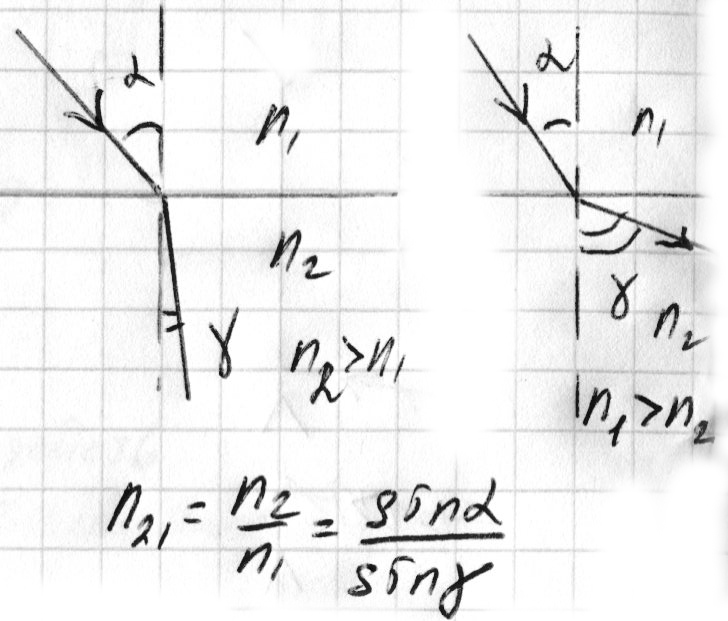 α
n₁
n₂
γ
n₂>n₁
α
n₁
γ
n₂
n₁>n₂
n₂₁ = n₂/n₁ = sinα/sinγ